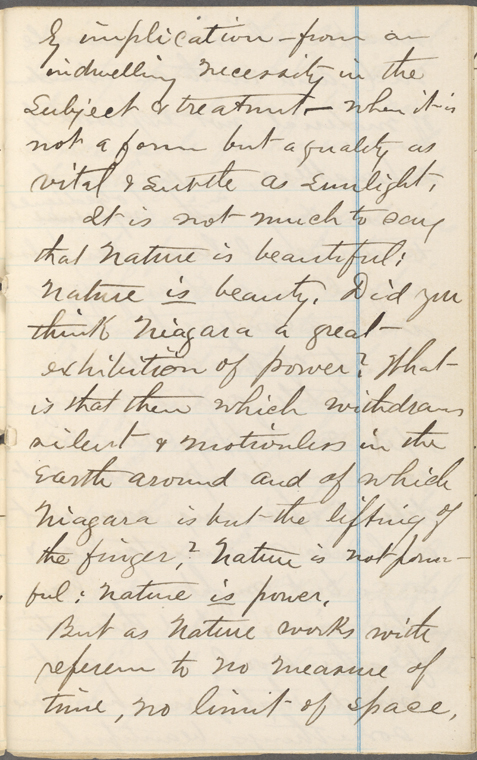 by implication – from an
indwelling necessity in the
subject & treatment – when it is
not a form but a quality as
vital & subtle as sunlight,
It is not much to say
that Nature is beautiful;
Nature is beauty. Did you
think Niagara a great
exhibition of power? What
is that then which withdraws
silent & motionless in the
Earth around and of which
Niagara is but the lifting of
the finger,? Nature is not power-
ful; Nature is power.
But as Nature works with
reference to no measure of
time, no limit of space,